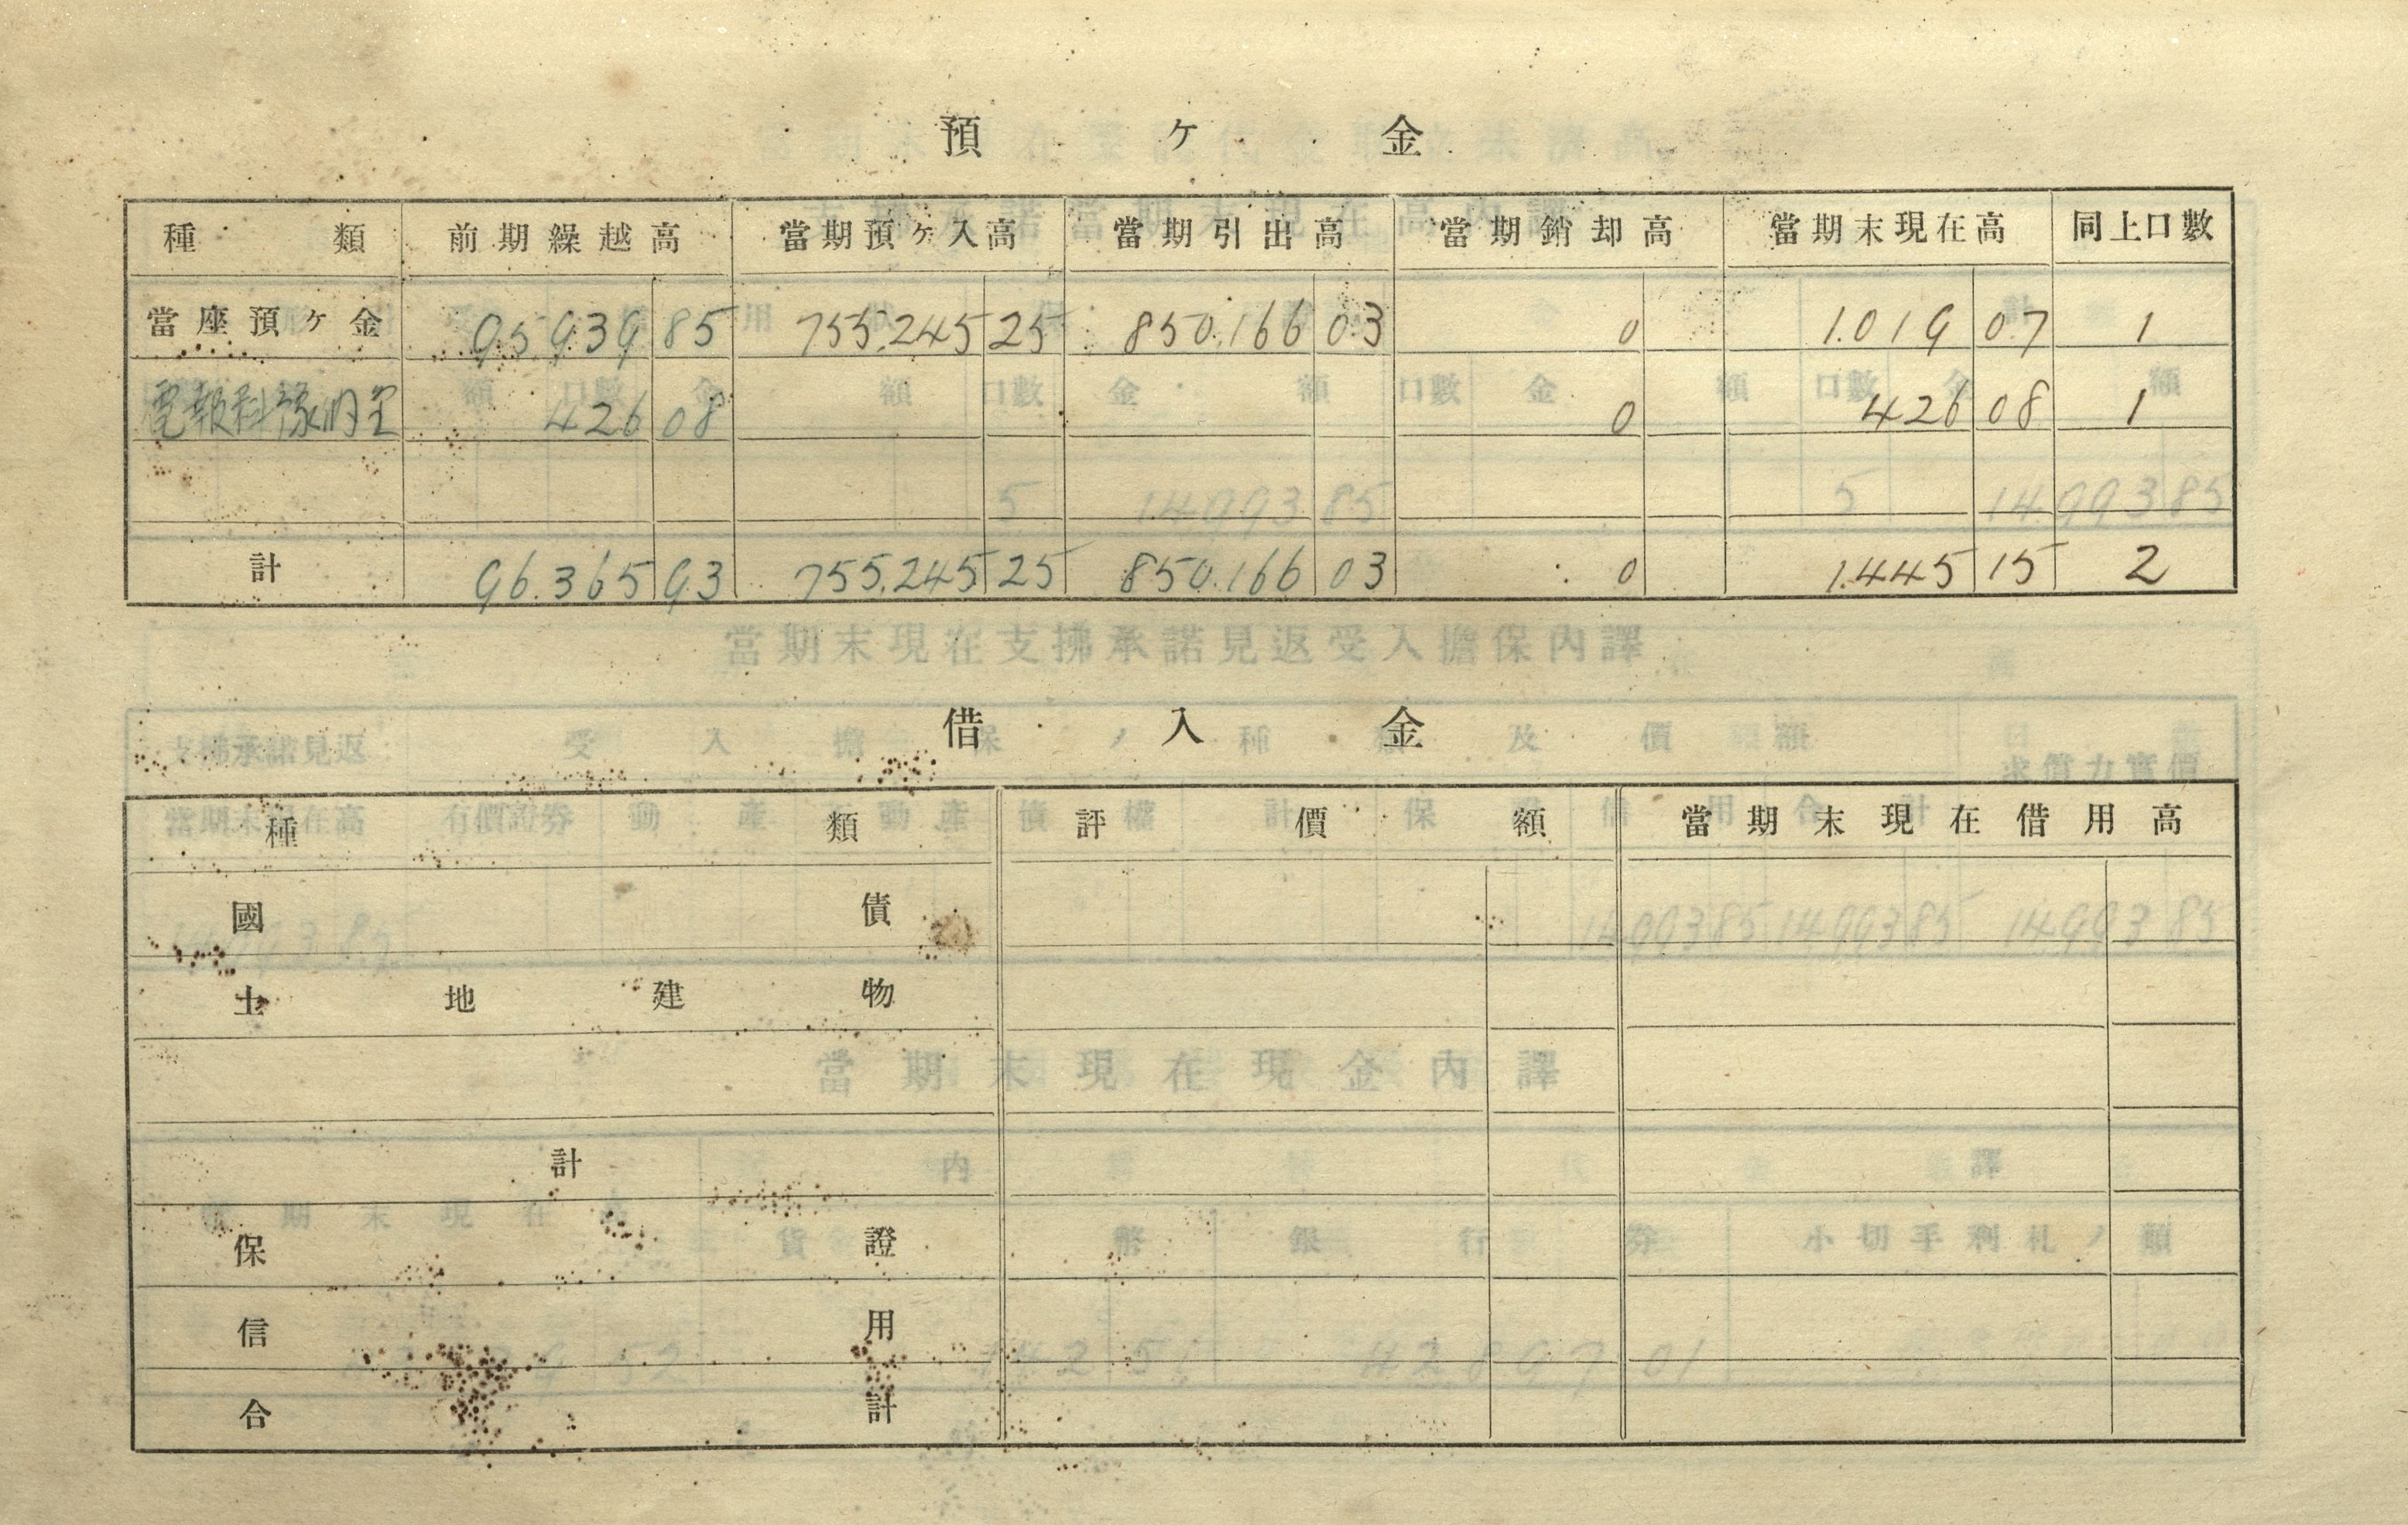 預ケ金
種類 前期繰越高 當期預ヶ入高 當期引出高 當期銷却高 當期末現在高 同上口數
當座預ヶ金 95.939 85 755.245 25 850.166 03 0 1.019 07 1
電報料豫納金 426 08 0 426 08 1
計 96.365 93 755.245 25 850.166 03 0 1.445 15 2
借入金
種類 評價額 當期末現在借用高
國債
土地建物
計
保證
信用
合計